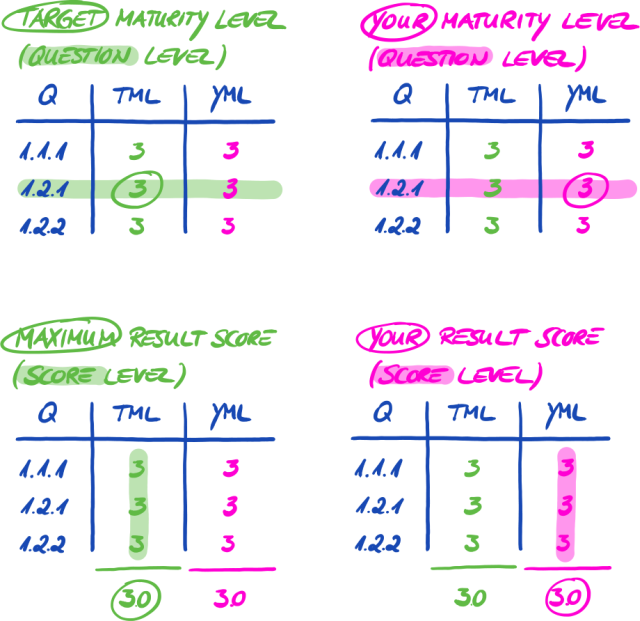 TARGET MATURITY LEVEL
(QUESTION LEVEL)
Q TML YML
1.1.1 3 3
1.2.1 3 3
1.2.2 3 3
YOUR MATURITY LEVEL
(QUESTION LEVEL)
Q TML YML
1.1.1 3 3
1.2.1 3 3
1.2.2 3 3
MAXIMUM RESULT SCORE
(SCORE LEVEL)
Q TML YML
1.1.1 3 3
1.2.1 3 3
1.2.2 3 3
3.0 3.0
YOUR RESULT SCORE
(SCORE LEVEL)
Q TML YML
1.1.1 3 3
1.2.1 3 3
1.2.2 3 3
3.0 3.0